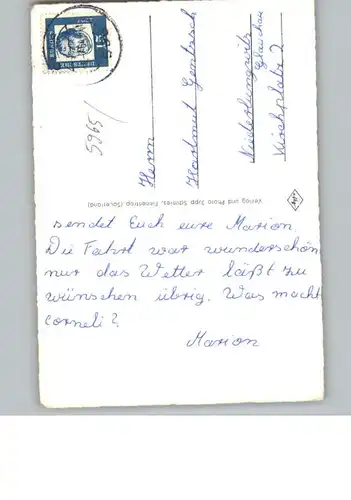 5965/
Herrn
Hartmut Gentzsch
Niederlungwitz
Glauchau
Kirchplatz 2
Verlag und Photo Jupp Schmies, Finnentrop (Sauerland)
sendet Euch eure Marion.
Die Fahrt war wunderschön
nur das Wetter läßt zu
wünschen übrig. Was macht
Corneli?
Marion